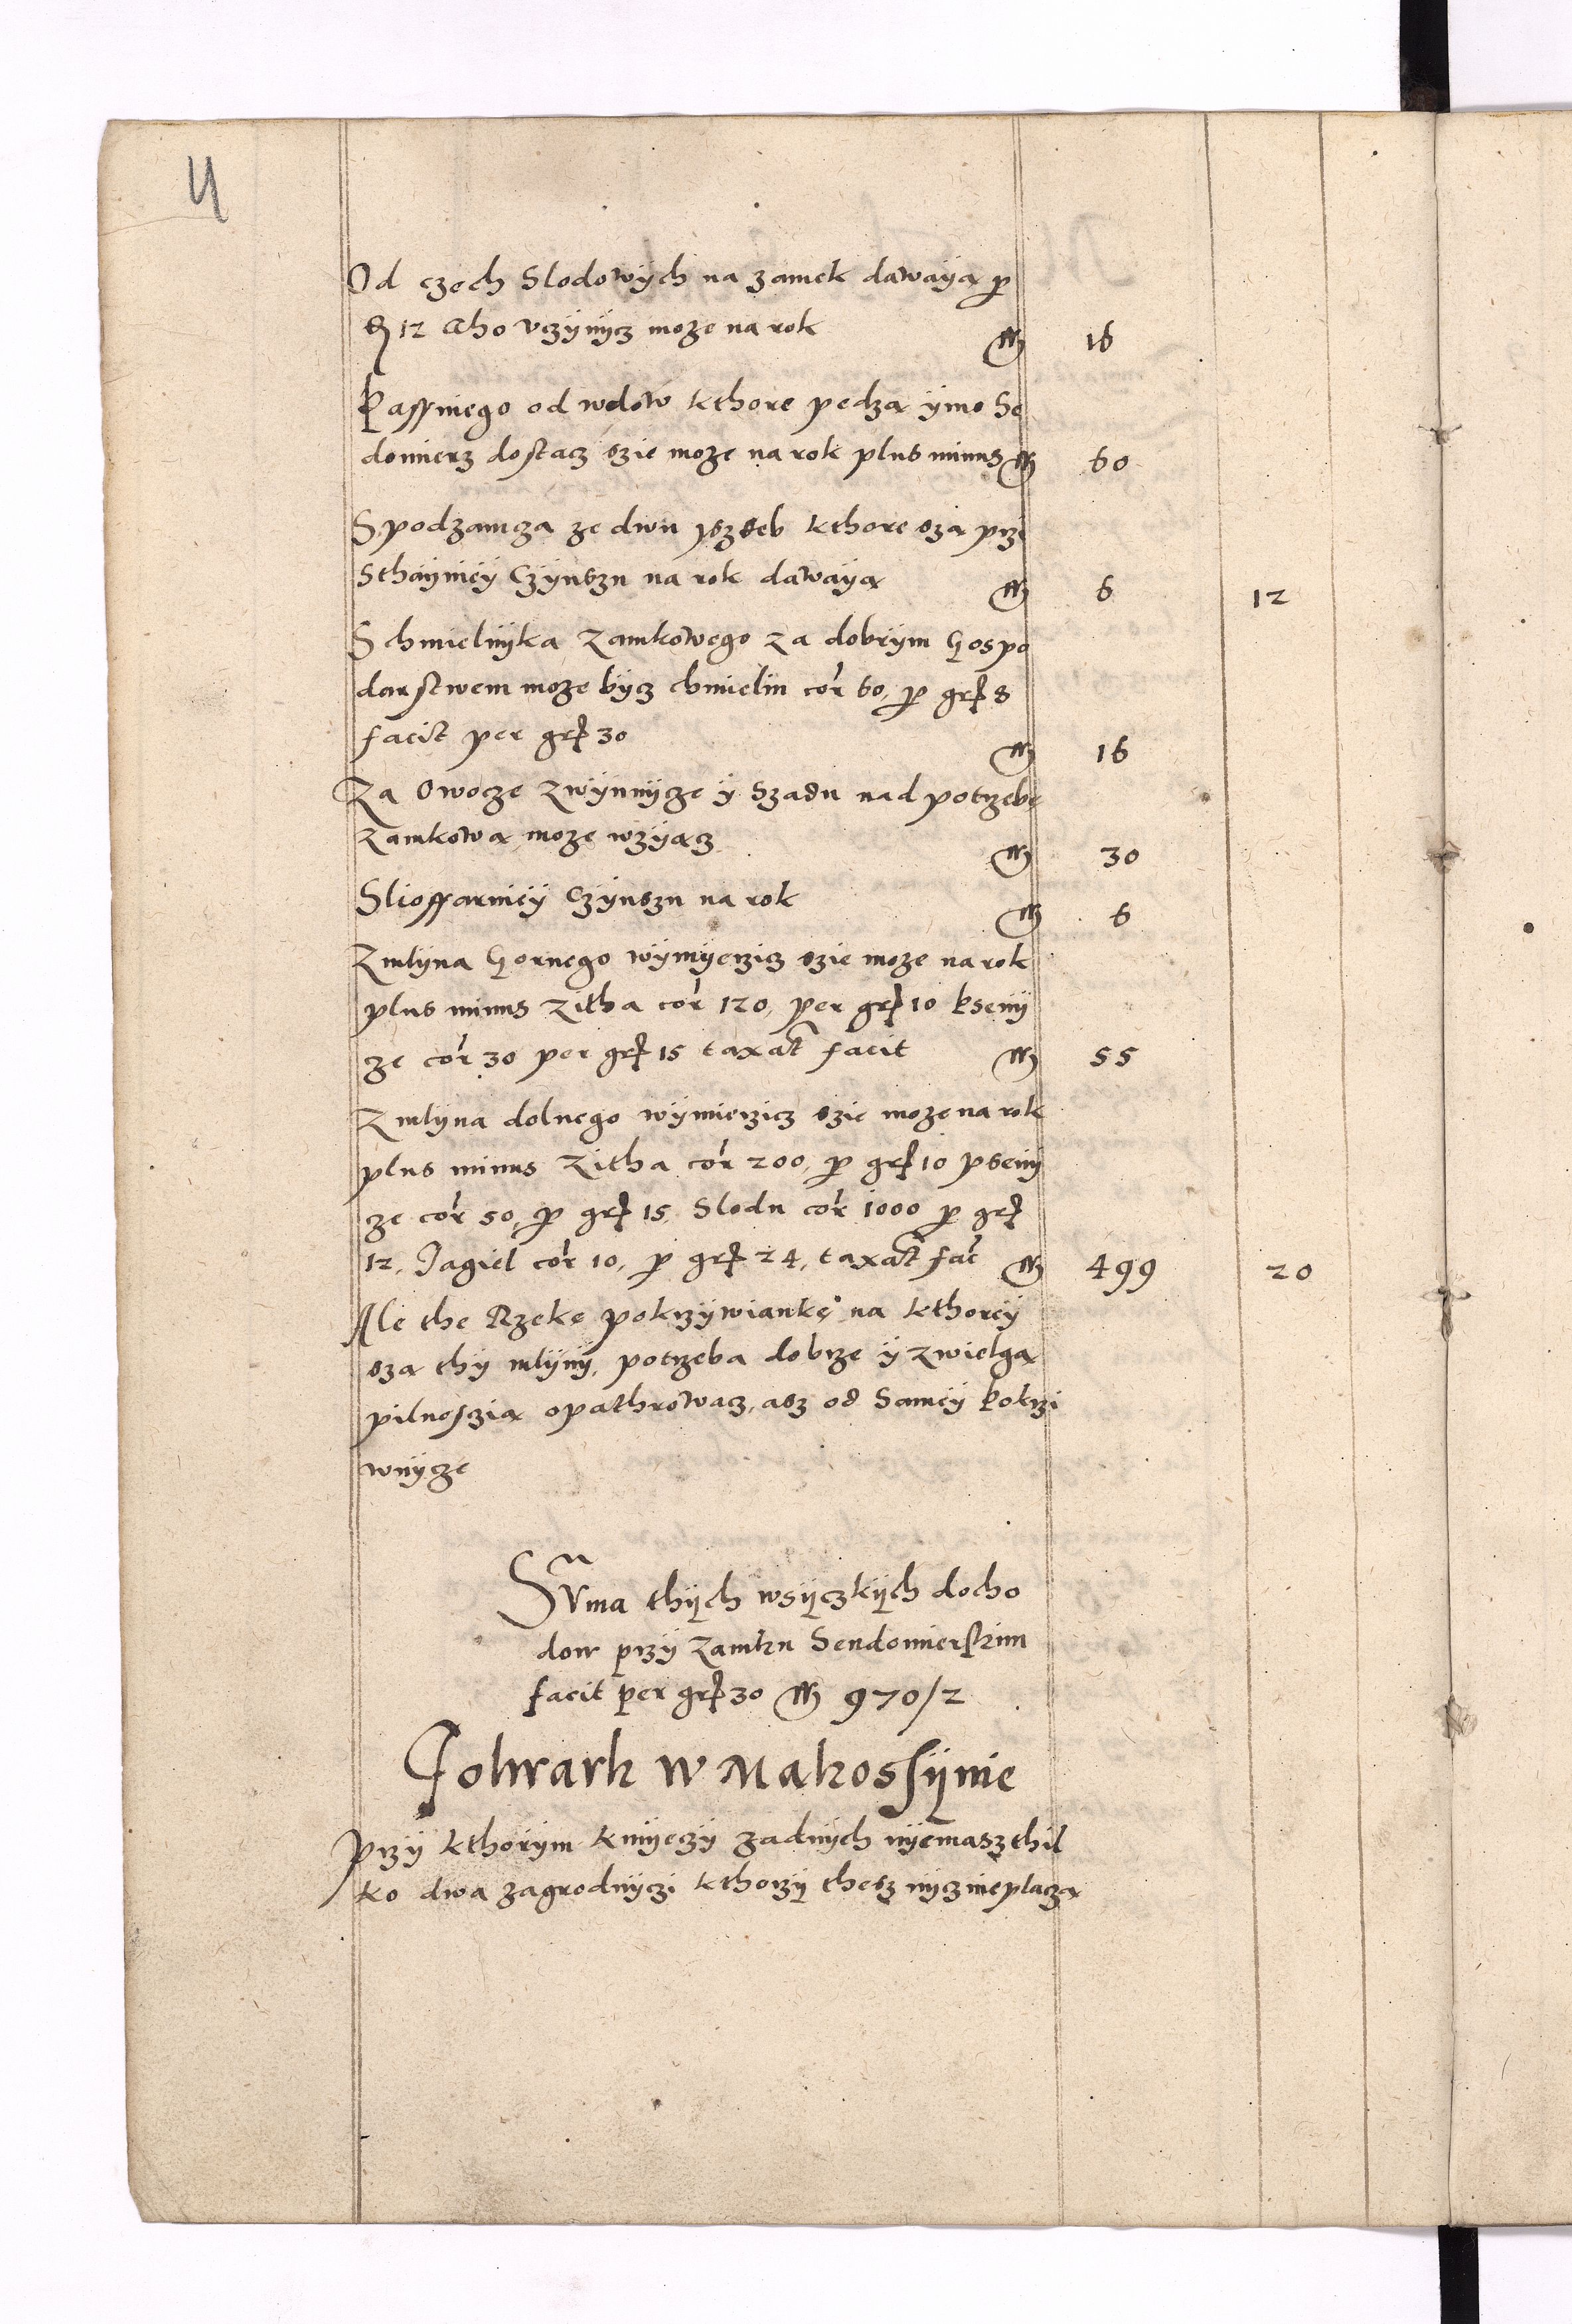 4
Od czech Slodowÿch na zamek dawaÿą ꝑ
12 Atho vczÿnÿcz może na rok ₥ 16
Passniego od wdow kthore pędzą ÿmo Sę
domierz dostacz szie może na rok plus minus ₥ 60
S podzamcza ze dwu yszdeb kthore szą przi
Sthaÿnieÿ Czÿnszu na rok dawaÿą ₥ 6 12
S chmielnÿka Zamkowego za dobrÿm Gospo
darstwem może bÿcz chmielin cor 60, ꝑ grꝭ 8
facit per grꝭ 30 ₥ 16
Za Owocze Zwÿnnÿcze ÿ Szadu nad potrzebę
zamkową może wzÿącz ₥ 30
Sliossarniéÿ Czÿnszu na rok ₥ 6
Zmlÿna Gornego wÿmÿerzicz szie może na rok
plus minus Zitha cor 120, per grꝭ 10 psenÿ
ze cor 30 per grꝭ 15 taxat facit ₥ 55
Zmlÿna dolnego wÿmierzicz szie może na rok
plus minus Zitha cor 200, ꝑ grꝭ 10 psenÿ
ze cor 50, ꝑ grꝭ 15, Slodu cor 1000 ꝑ grꝭ
12, Jagiel cor 10, ꝑ grꝭ 24, taxat fac ₥ 499 20
Ale the Rzekę pokrzÿwiankę na kthoreÿ
szą thÿ mlÿnÿ, potrzeba dobrze ÿ zwielgą
pilnosczią opathrowacz, asz od Saméÿ Pokrzi
wnÿcze
Suma thÿch wsÿczkÿch docho
dow przÿ Zamku Sendomierskim
facit per grꝭ 30 ₥ 970/2
Folwark w Makossÿnie
Przÿ kthorÿm kmÿeczÿ żadnÿch nÿemasz thil
ko dwa zagrodnÿczi kthorzÿ thesz nÿcz nieplaczą